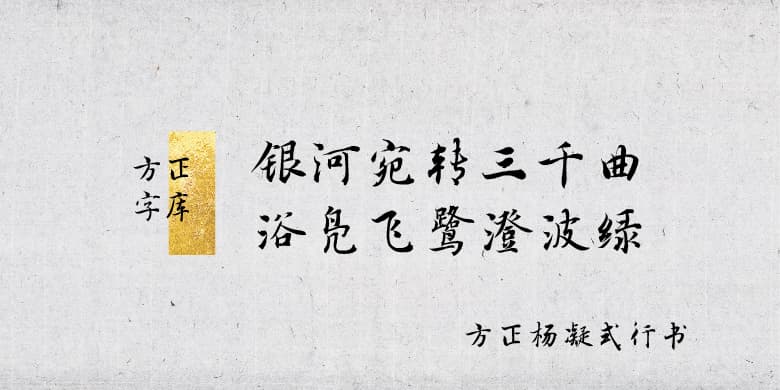 方正
字库
银河宛转三千曲
浴凫飞鹭澄波绿
方正杨凝式行书